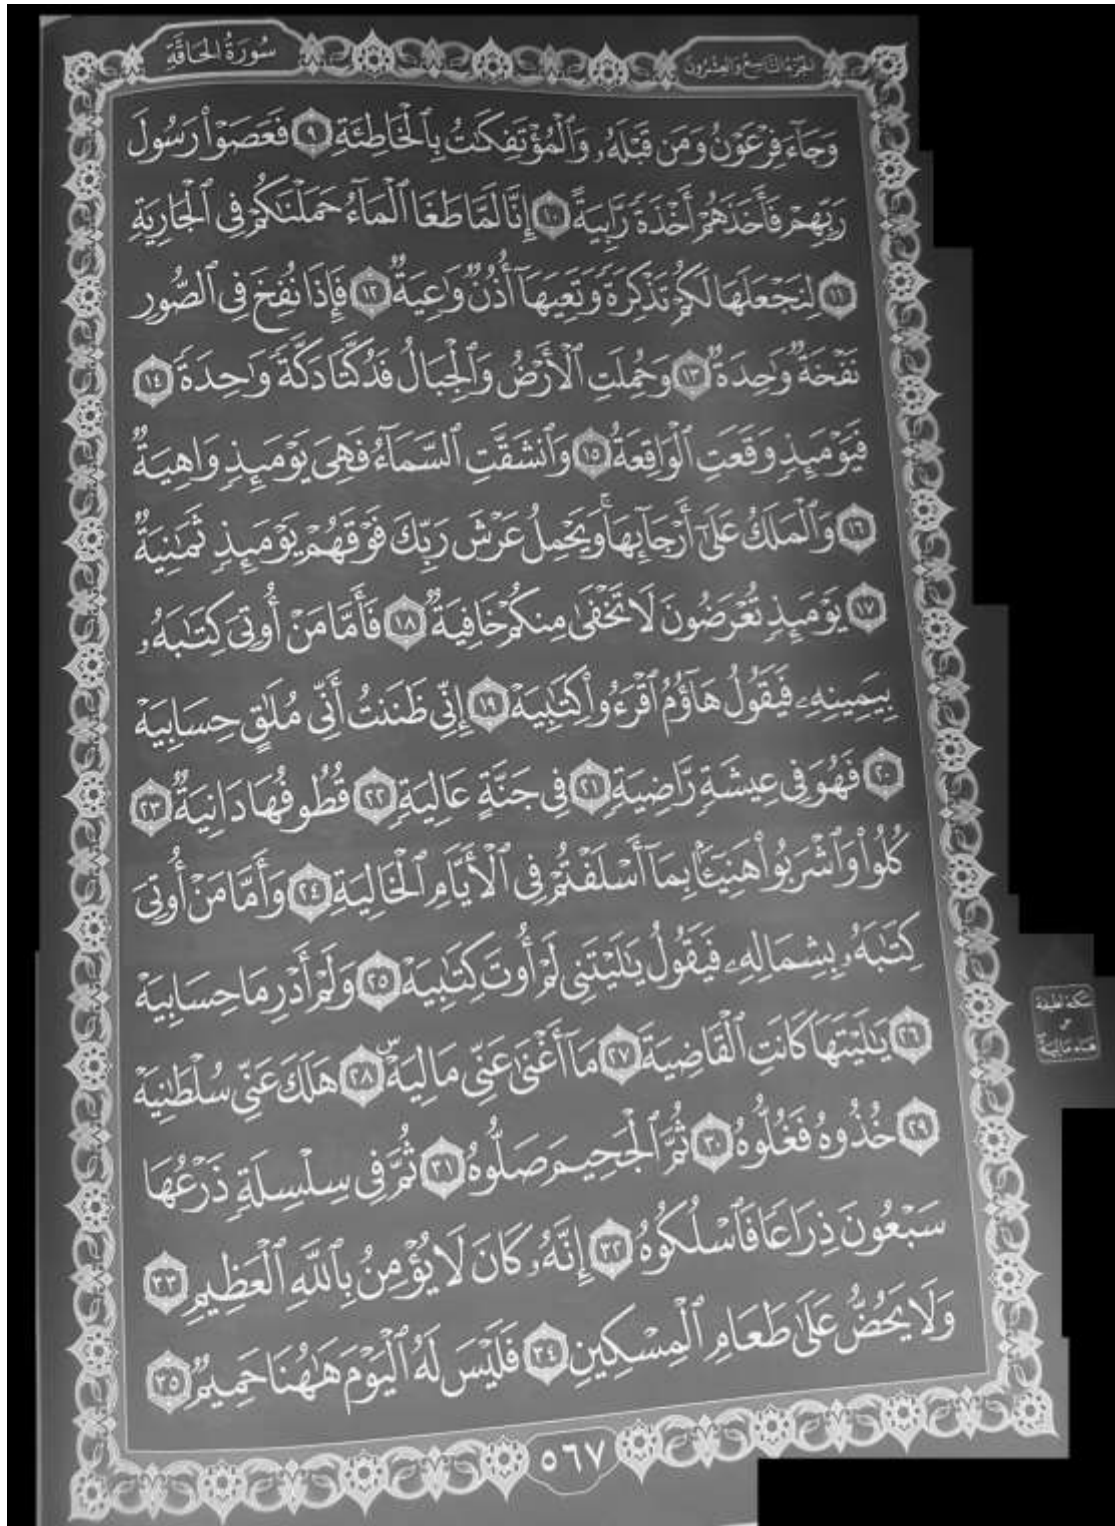 سُورَةُ الحَاقَّةِ
الجُزءُ التَّاسِعُ وَالعِشْرُونَ
وَجَآءَ فِرْعَوْنُ وَمَن قَبْلَهُۥ وَٱلْمُؤْتَفِكَٰتُ بِٱلْخَاطِئَةِ ٩ فَعَصَوْا۟ رَسُولَ
رَبِّهِمْ فَأَخَذَهُمْ أَخْذَةً رَّابِيَةً ١٠ إِنَّا لَمَّا طَغَا ٱلْمَآءُ حَمَلْنَٰكُمْ فِى ٱلْجَارِيَةِ
١١ لِنَجْعَلَهَا لَكُمْ تَذْكِرَةً وَتَعِيَهَآ أُذُنٌ وَٰعِيَةٌ ١٢ فَإِذَا نُفِخَ فِى ٱلصُّورِ
نَفْخَةٌ وَٰحِدَةٌ ١٣ وَحُمِلَتِ ٱلْأَرْضُ وَٱلْجِبَالُ فَدُكَّتَا دَكَّةً وَٰحِدَةً ١٤
فَيَوْمَئِذٍ وَقَعَتِ ٱلْوَاقِعَةُ ١٥ وَٱنشَقَّتِ ٱلسَّمَآءُ فَهِىَ يَوْمَئِذٍ وَاهِيَةٌ
١٦ وَٱلْمَلَكُ عَلَىٰٓ أَرْجَآئِهَا ۚ وَيَحْمِلُ عَرْشَ رَبِّكَ فَوْقَهُمْ يَوْمَئِذٍ ثَمَٰنِيَةٌ
١٧ يَوْمَئِذٍ تُعْرَضُونَ لَا تَخْفَىٰ مِنكُمْ خَافِيَةٌ ١٨ فَأَمَّا مَنْ أُوتِىَ كِتَٰبَهُۥ
بِيَمِينِهِۦ فَيَقُولُ هَآؤُمُ ٱقْرَءُوا۟ كِتَٰبِيَهْ ١٩ إِنِّى ظَنَنتُ أَنِّى مُلَٰقٍ حِسَابِيَهْ
٢٠ فَهُوَ فِى عِيشَةٍ رَّاضِيَةٍ ٢١ فِى جَنَّةٍ عَالِيَةٍ ٢٢ قُطُوفُهَا دَانِيَةٌ ٢٣
كُلُوا۟ وَٱشْرَبُوا۟ هَنِيٓـًٔۢا بِمَآ أَسْلَفْتُمْ فِى ٱلْأَيَّامِ ٱلْخَالِيَةِ ٢٤ وَأَمَّا مَنْ أُوتِىَ
كِتَٰبَهُۥ بِشِمَالِهِۦ فَيَقُولُ يَٰلَيْتَنِى لَمْ أُوتَ كِتَٰبِيَهْ ٢٥ وَلَمْ أَدْرِ مَا حِسَابِيَهْ
٢٦ يَٰلَيْتَهَا كَانَتِ ٱلْقَاضِيَةَ ٢٧ مَآ أَغْنَىٰ عَنِّى مَالِيَهْ ۜ ٢٨ هَلَكَ عَنِّى سُلْطَٰنِيَهْ
٢٩ خُذُوهُ فَغُلُّوهُ ٣٠ ثُمَّ ٱلْجَحِيمَ صَلُّوهُ ٣١ ثُمَّ فِى سِلْسِلَةٍ ذَرْعُهَا
سَبْعُونَ ذِرَاعًا فَٱسْلُكُوهُ ٣٢ إِنَّهُۥ كَانَ لَا يُؤْمِنُ بِٱللَّهِ ٱلْعَظِيمِ ٣٣
وَلَا يَحُضُّ عَلَىٰ طَعَامِ ٱلْمِسْكِينِ ٣٤ فَلَيْسَ لَهُ ٱلْيَوْمَ هَٰهُنَا حَمِيمٌ ٣٥
٥٦٧